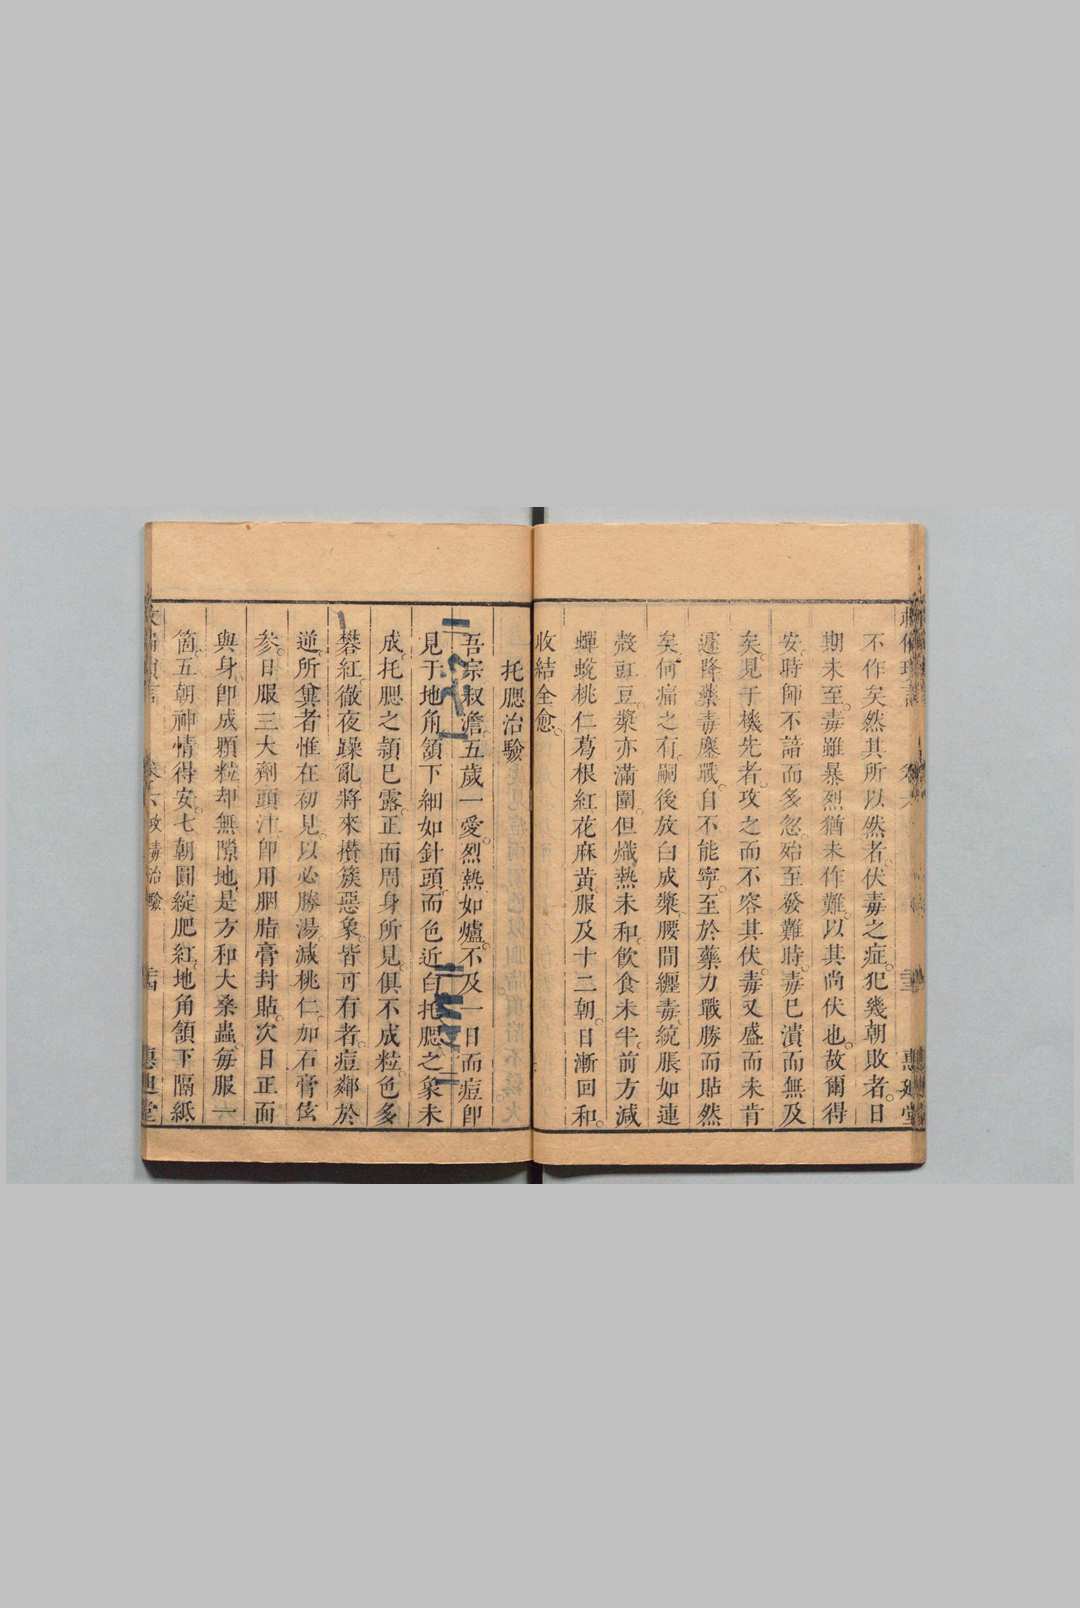 不作矣然其所以然者伏毒之症犯幾朝敗者日
期未至毒雖暴烈猶未作難以其尚伏也故爾得
安時師不諳而多忽殆至發難時毒已潰而無及
矣見于機先者攻之而不容其伏毒又盛而未肯
遽降藥毒麋戰自不能寧至於藥力戰勝而貼然
矣何痛之有嗣後放白成漿腰間纏毒統脹如連
殼豇豆漿亦滿圍但熾熱未和飲食未半前方減
蟬蛻桃仁葛根紅花麻黃服及十二朝日漸回和
收結全愈
托腮治驗
吾宗叔澹五歲一愛烈熱如爐不及一日而痘即
見于地角頷下細如針頭而色近白托腮之象未
成托腮之穎已露正面周身所見俱不成粒色多
礬紅徹夜躁亂將來攢簇惡象皆可有者痘鄰於
逆所兾者惟在初見以必勝湯減桃仁加石膏伭
參日服三大劑頭汁即用胭脂膏封貼次日正面
與身即成顆粒却無隙地是方和大桑蟲每服六
箇五朝神情得安七朝圓綻肥紅地角頷下隔紙
卷六 攻毒治驗 惠迪堂